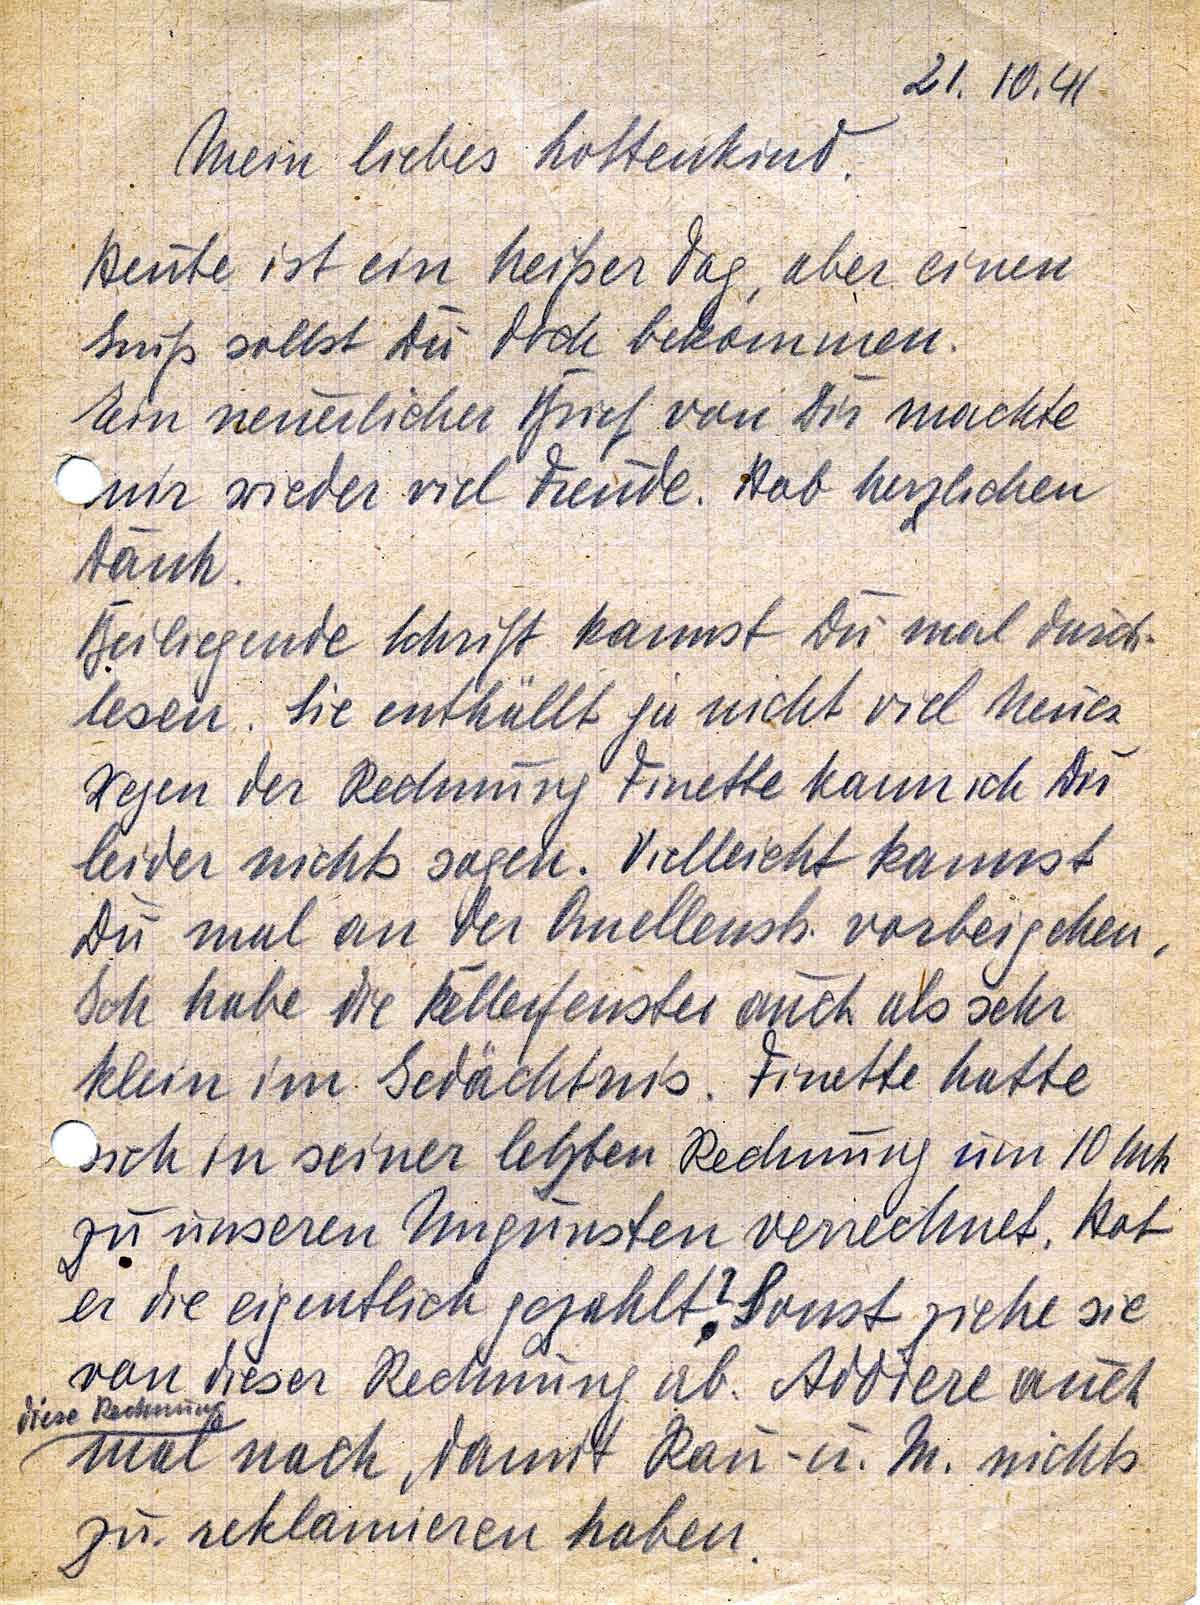 21. 10. 41
Mein liebes Lottenkind.
Heute ist ein heißer Tag, aber einen
Gruß sollst Du doch bekommen.
Ein neuerlicher Brief von Dir machte
mir wieder viel Freude. Hab herzlichen
Dank.
Beiliegende Schrift kannst Du mal durch-
lesen. Sie enthällt ja nicht viel Neues
Wegen der Rechnung Finette kann ich Dir
leider nichts sagen. Vielleicht kannst
Du mal an der Quellenstr. vorbeigehen,
Ich habe die Kellerfenster auch als sehr
klein im Gedächtnis. Finette hatte
sich in seiner letzten Rechnung um 10 Mk
zu unseren Ungunsten verrechnet. Hat
er die eigentlich gezahlt? Sonst ziehe sie
von dieser Rechnung ab. Addiere auch
diese Rechnung
mal nach, damit Rau- u. M. nichts
zu reklamieren haben.